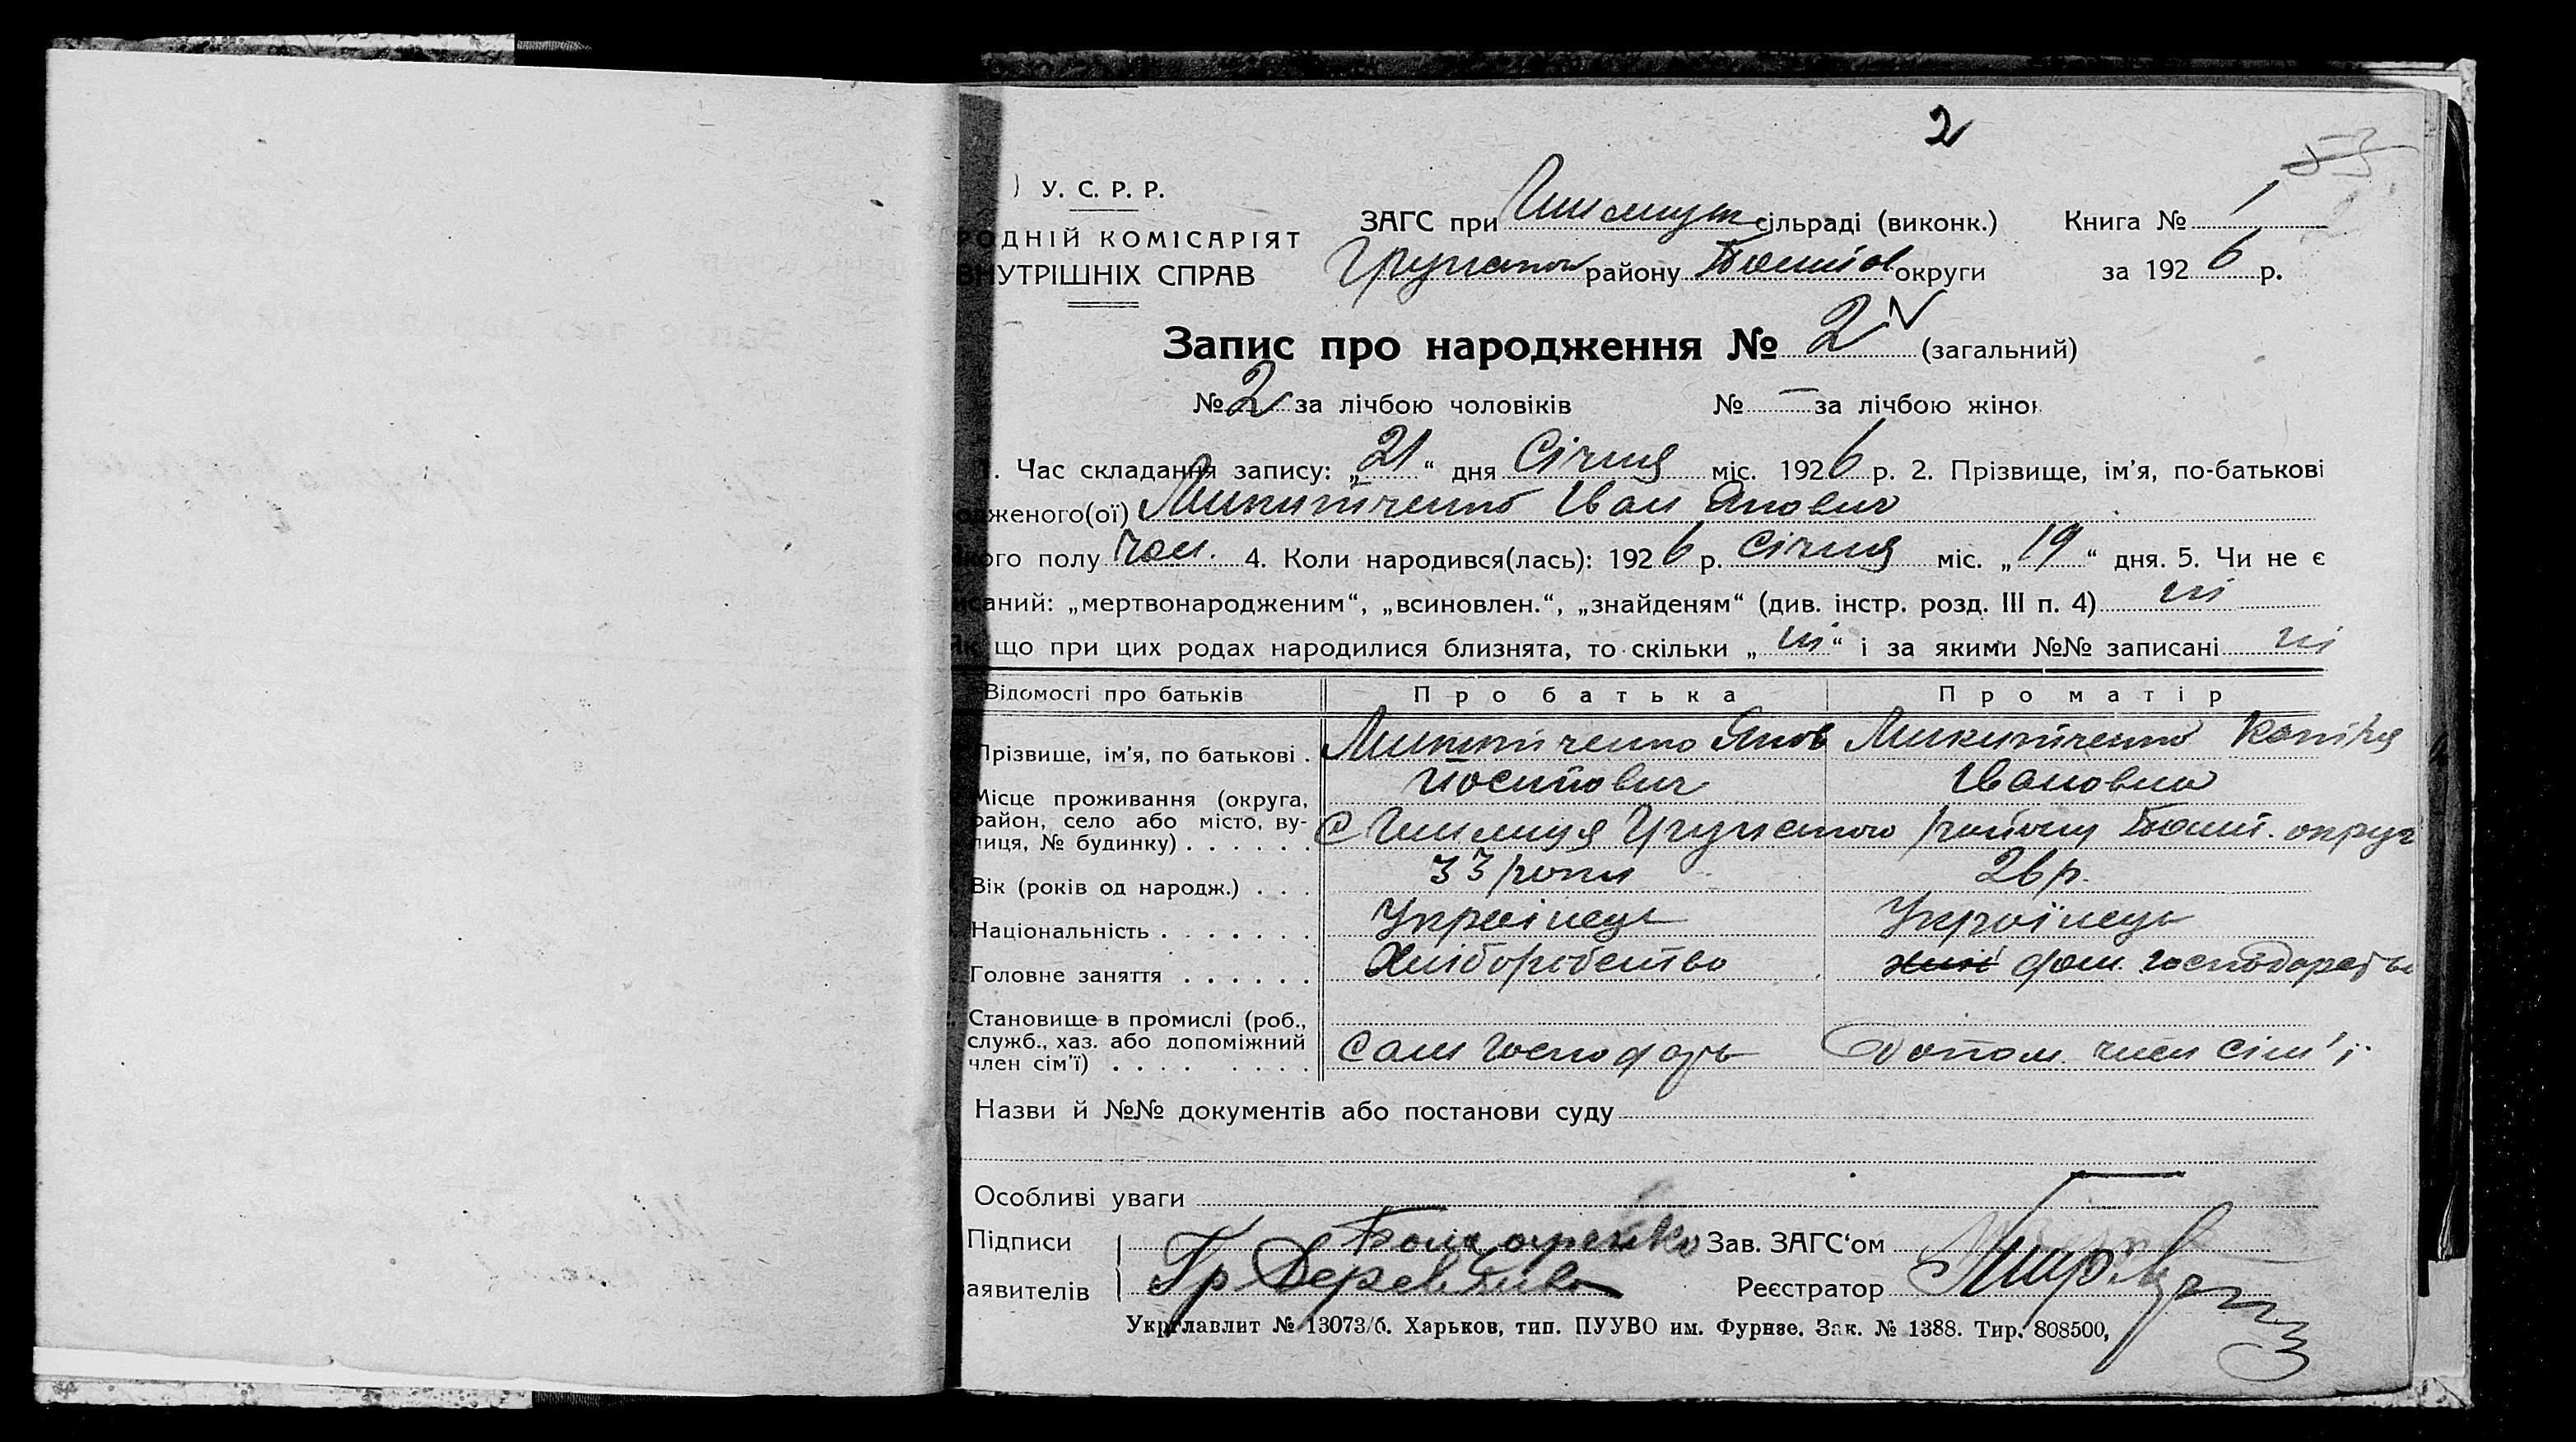 2
53
У. С. Р. Р.
РОДНІЙ КОМІСАРІЯТ
ВНУТРІШНІХ СПРАВ
ЗАГС при сільраді (виконк.) Книга № 1
району округи за 1926 р.
Запис про народження № 2 (загальний)
№ 2 за лічбою чоловіків № — за лічбою жінок
1. Час складання запису: „21“ дня Січня міс. 1926 р. 2. Прізвище, ім’я, по-батькові
одженого(ої) Микитченко Іван Якович
якого полу чол. 4. Коли народився(лась): 1926 р. Січня міс. „19“ дня. 5. Чи не є
исаний: „мертвонародженим“, „всиновлен.“, „знайденям“ (див. інстр. розд. III п. 4) ні
Як що при цих родах народилися близнята, то скільки „ні“ і за якими №№ записані ні
Відомості про батьків Про батька Про матір
Прізвище, ім’я, по батькові . Микитченко Яков Микитченко
Йосипович Івановна
Місце проживання (округа, район, село або місто, вулиця, № будинку) . . . . . . с району округ
Вік (років од народж.) . . . 33 роки 26 р.
Національність . . . . . . . Українець Українець
Головне заняття . . . . . . Хліборобство дом. господарство
Становище в промислі (роб.,
служб., хаз. або допоміжний
член сім’ї) . . . . . . . . Сам господарь Допом. член сім’ї
Назви й №№ документів або постанови суду
Особливі уваги
Підписи Бондаренко Зав. ЗАГС‘ом
заявителів Гр Реєстратор
Укрглавлит № 13073/б. Харьков, тип. ПУУВО им. Фрунзе. Зак. № 1388. Тир. 808500,